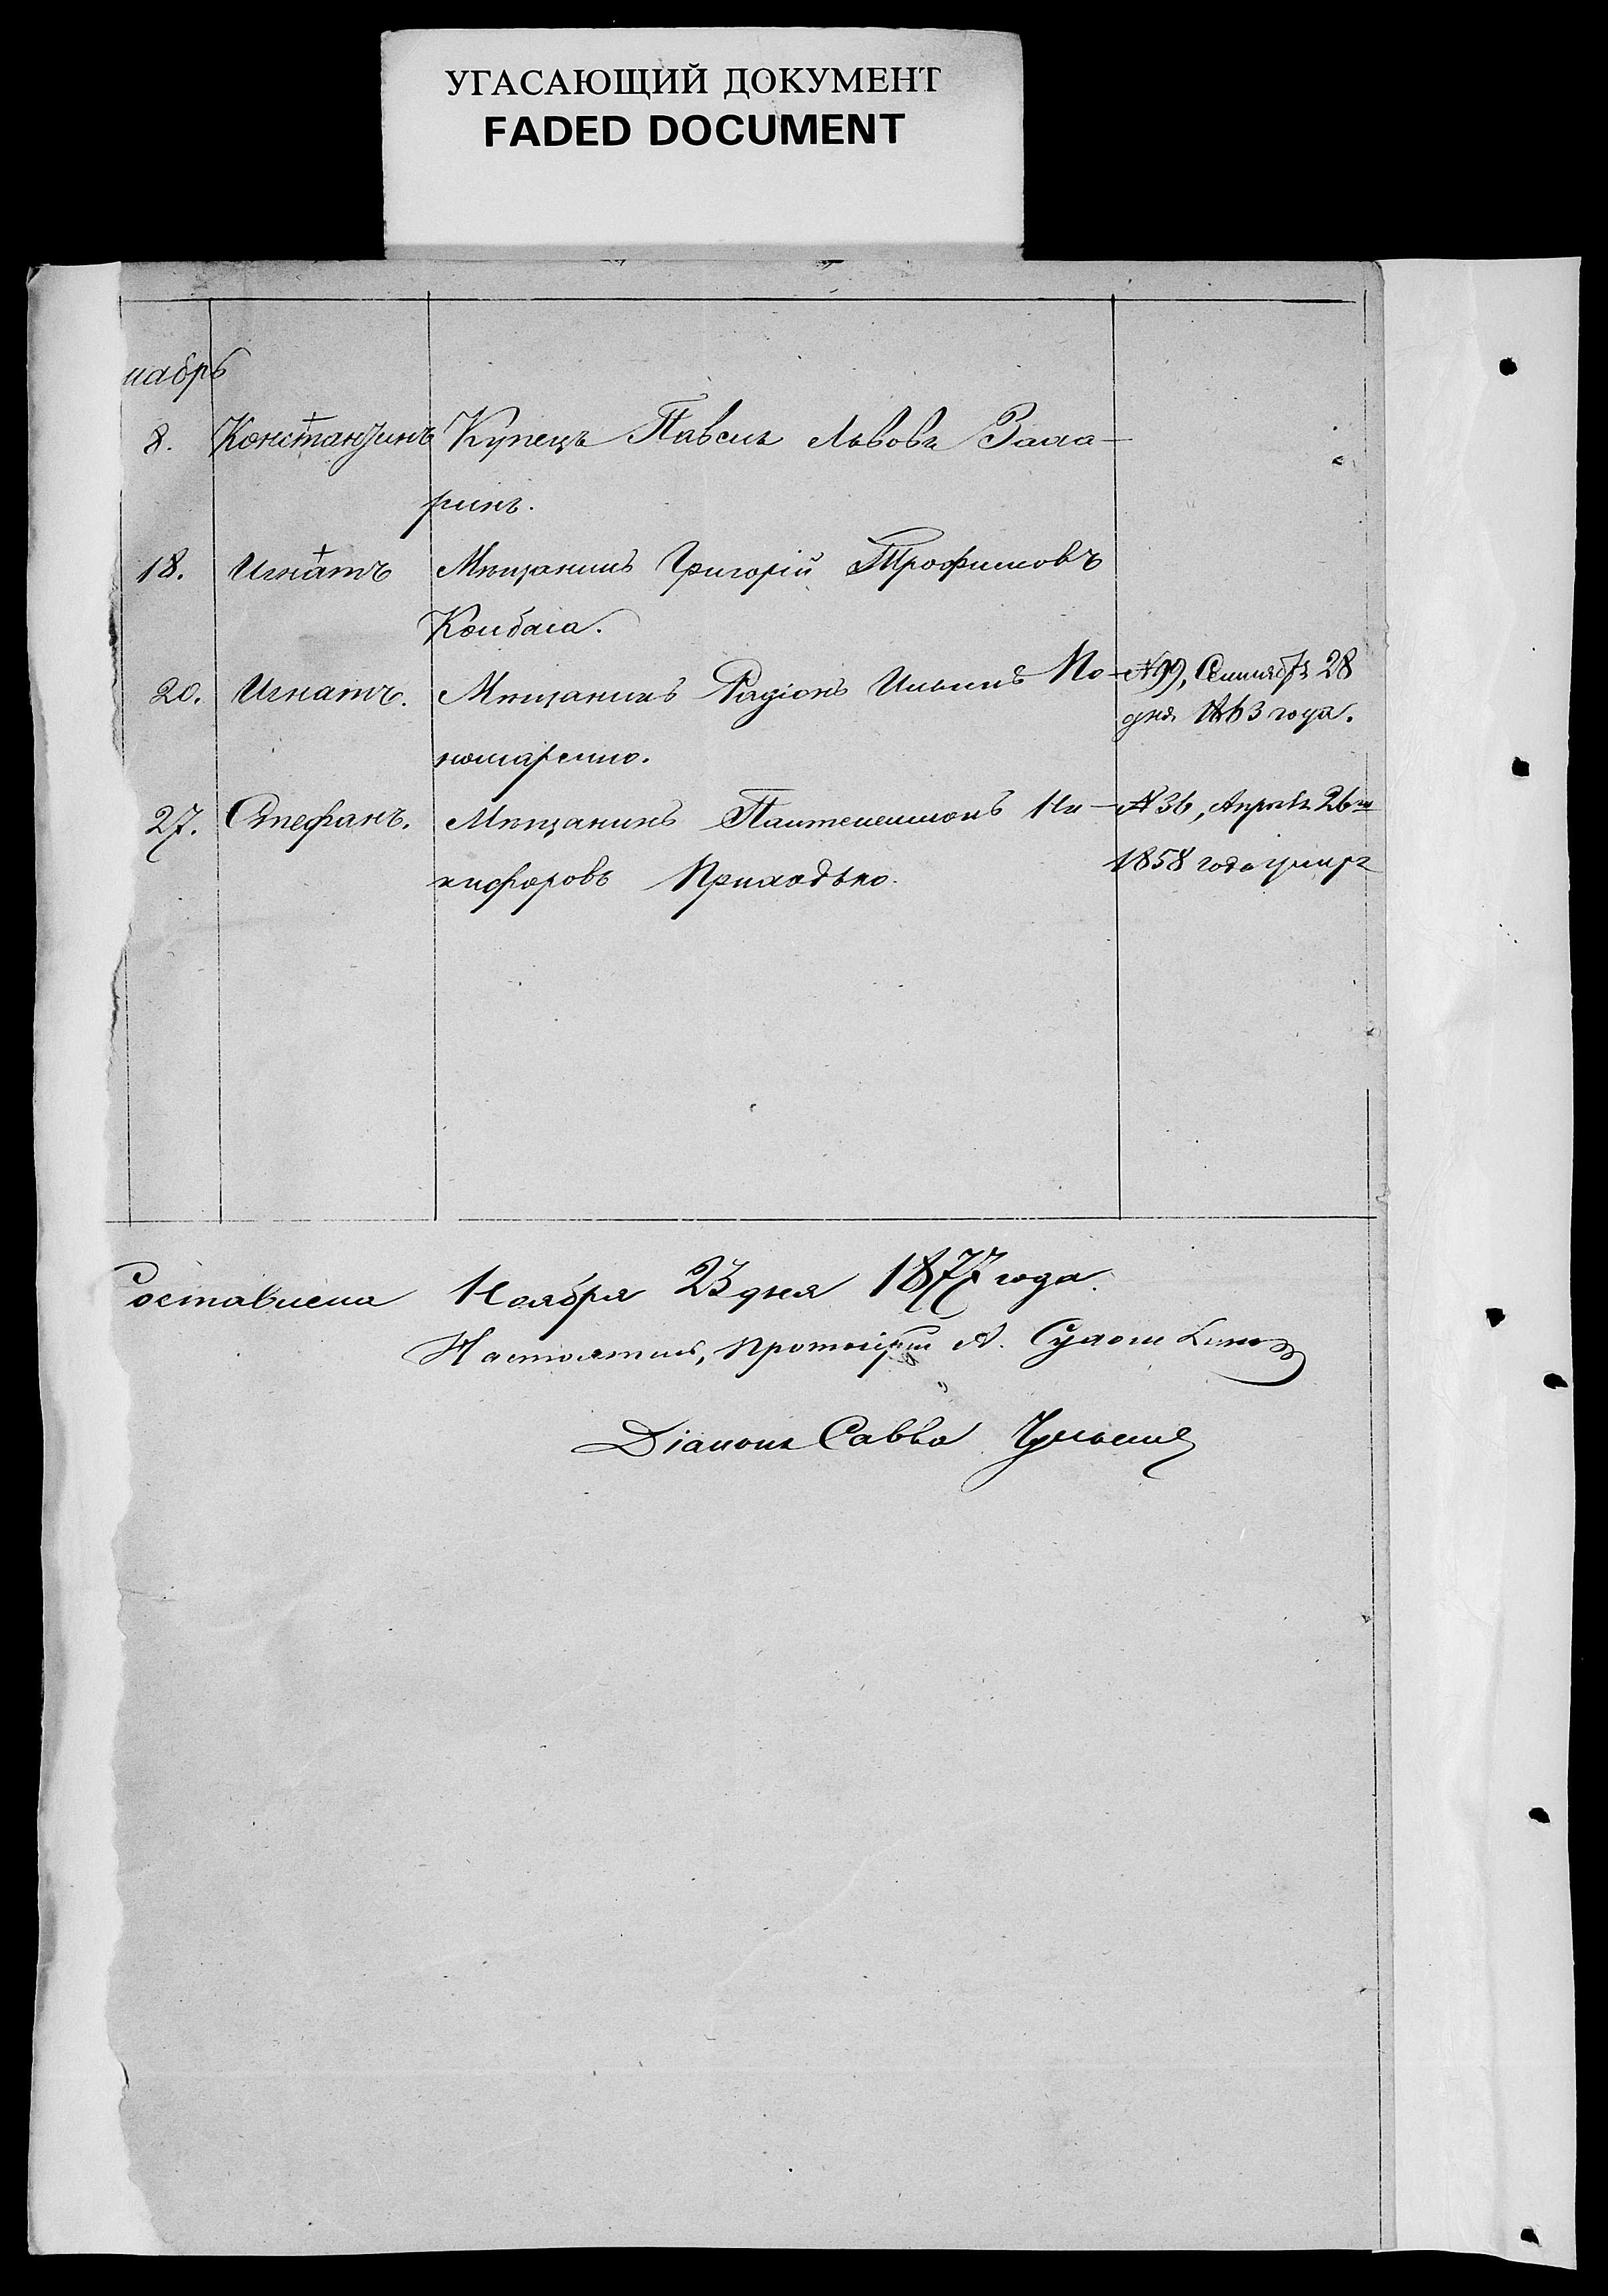 УГАСАЮЩИЙ ДОКУМЕНТ
FADED DOCUMENT
кабрь
8. Константинъ Купецъ Павелъ Львовъ Зала-
ринъ.
18. Игнатъ Мѣщанинъ Григорій Трофимовъ
Колбаса.
20. Игнатъ. Мѣщанинъ Радіонъ Ильинъ По- №99, Сентября 28
номаренко. дня 1863 года.
27. Стефанъ. Мѣщанинъ Пантелеимонъ Ни- №36, Апрѣля 26
кифоровъ Приходько. 1858 года умеръ
Составлена Ноября 23 дня 1877 года.
Настоятель, протоіерей А.
Діаконъ Савва